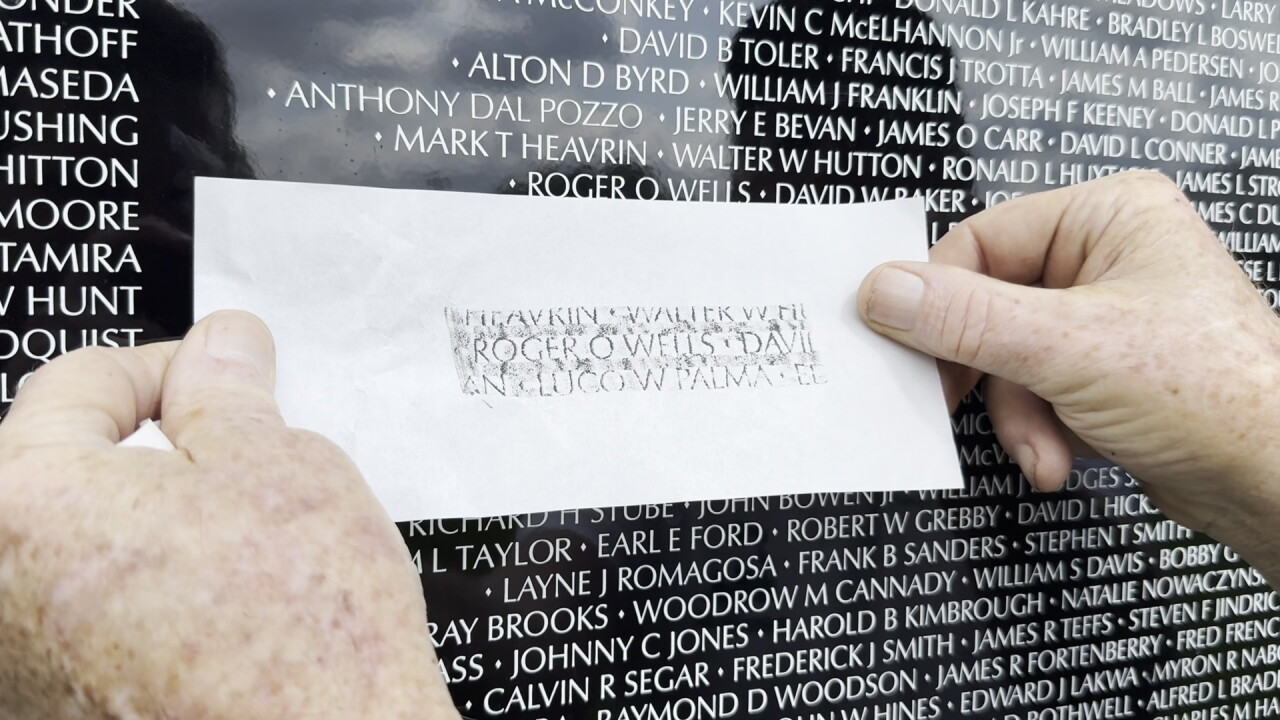 ONDER
ATHOFF
MASEDA
USHING
HITTON
MOORE
TAMIRA
W HUNT
DQUIST
McCONKEY · KEVIN C McELHANNON Jr · WILLIAM A PEDERSEN
DONALD L KAHRE · BRADLEY L BOSWE
MEADOWS · LARRY
· DAVID B TOLER · FRANCIS J TROTTA · JAMES M BALL · JAMES R
· ALTON D BYRD · WILLIAM J FRANKLIN · JOSEPH F KEENEY · DONALD L P
· ANTHONY DAL POZZO · JERRY E BEVAN · JAMES O CARR · DAVID L CONNER · JAME
· MARK T HEAVRIN · WALTER W HUTTON · RONALD L HUXTA JAMES L STR
· ROGER O WELLS · DAVID W BAKER · JOE MES C DU
WILLIAM
HEAVRIN · WALTER W HU
ROGER O WELLS · DAVI
AN · LUCO W PALMA · EL
RICHARD H STUBE · JOHN BOWEN Jr · WILLIAM J HODGES
M L TAYLOR · EARL E FORD · ROBERT W GREBBY · DAVID L HICKS
· LAYNE J ROMAGOSA · FRANK B SANDERS · STEPHEN T SMITH
RAY BROOKS · WOODROW M CANNADY · WILLIAM S DAVIS · BOBBY G
ASS · JOHNNY C JONES · HAROLD B KIMBROUGH · NATALIE NOWACZYNSK
· CALVIN R SEGAR · FREDERICK J SMITH · JAMES R TEFFS · STEVEN F JINDRIC
RAYMOND D WOODSON · JAMES R FORTENBERRY · FRED FRENC
W HINES · EDWARD J LAKWA · MYRON R NABO
D BOTHWELL · ALFRED L BRAD